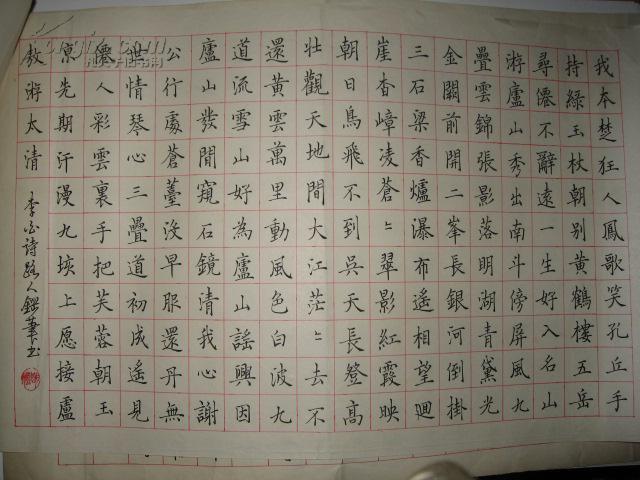 我本楚狂人鳳歌笑孔丘手
持綠玉杖朝别黄鶴樓五岳
尋僊不辭遠一生好入名山
游廬山秀出南斗傍屏風九
疊雲錦張影落明湖青黛光
金闕前開二峯長銀河倒掛
三石梁香爐瀑布遙相望迴
崖沓嶂凌蒼〻翠影紅霞映
朝日鳥飛不到吳天長登高
壯觀天地間大江茫〻去不
還黃雲萬里動風色白波九
道流雪山好為廬山謠興因
廬山發閒窺石鏡清我心謝
公行處蒼薹沒早服還丹無
世情琴心三疊道初成遙見
僊人彩雲裏手把芙蓉朝玉
京先期汗漫九垓上愿接盧
敖游太清
李白詩路人筆书